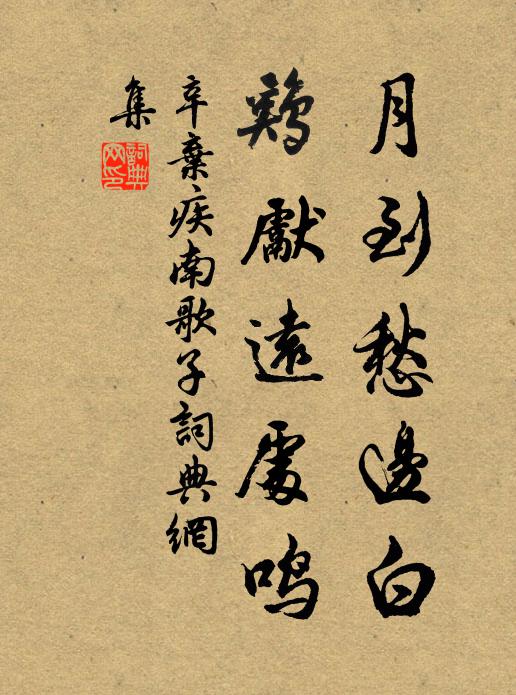 月到愁邊白
鷄獻遠處鳴
辛棄疾南歌子詞典網
集
詞典
网印